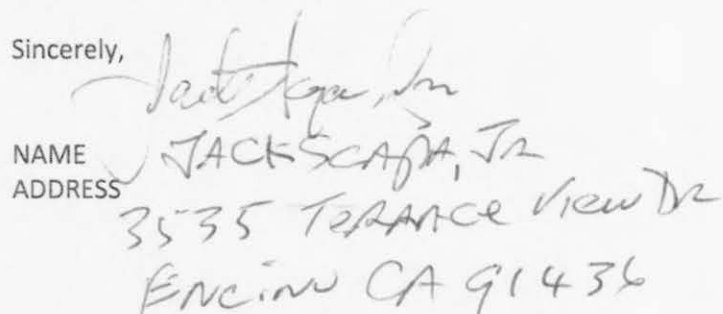 Sincerely,
Jack Scapa, Jr
NAME JACK SCAPA, JR
ADDRESS
3535 TERRANCE VIEW DR
ENCINO CA 91436